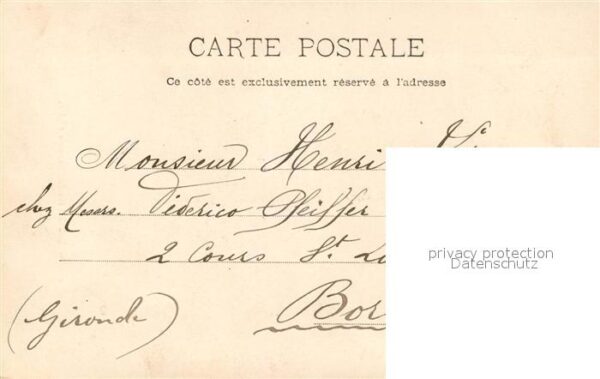 CARTE POSTALE
Ce côté est exclusivement réservé à l'adresse
Monsieur Henri
chez Messrs. Féderico Pfeiffer
2 Cours St.
Bor
(Gironde)
privacy protection
Datenschutz